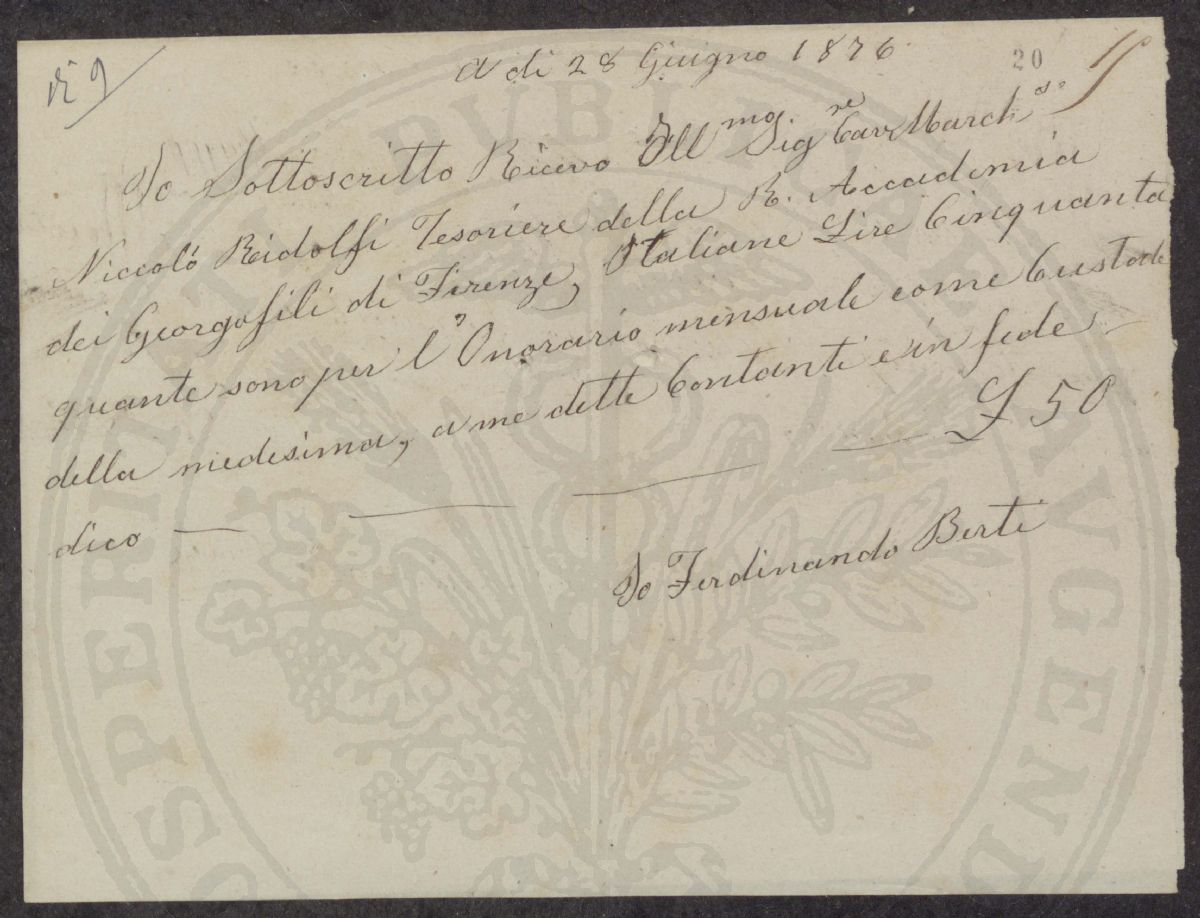 di 9
A di 28 Giugno 1876
20
Io Sottoscritto Ricevo Ill mo. Sig re Cav March se
Niccoló Ridolfi Tesoriere della R. Accademia
dei Georgofili di Firenze, Italiane Lire Cinquanta
quante sono per l'Onorario mensuale come Custode
della medesima, a me dette Contanti e in fede
dico — — — — £ 50
Io Ferdinando Berti
PROSPERITATI PUBLICAE AUGENDAE